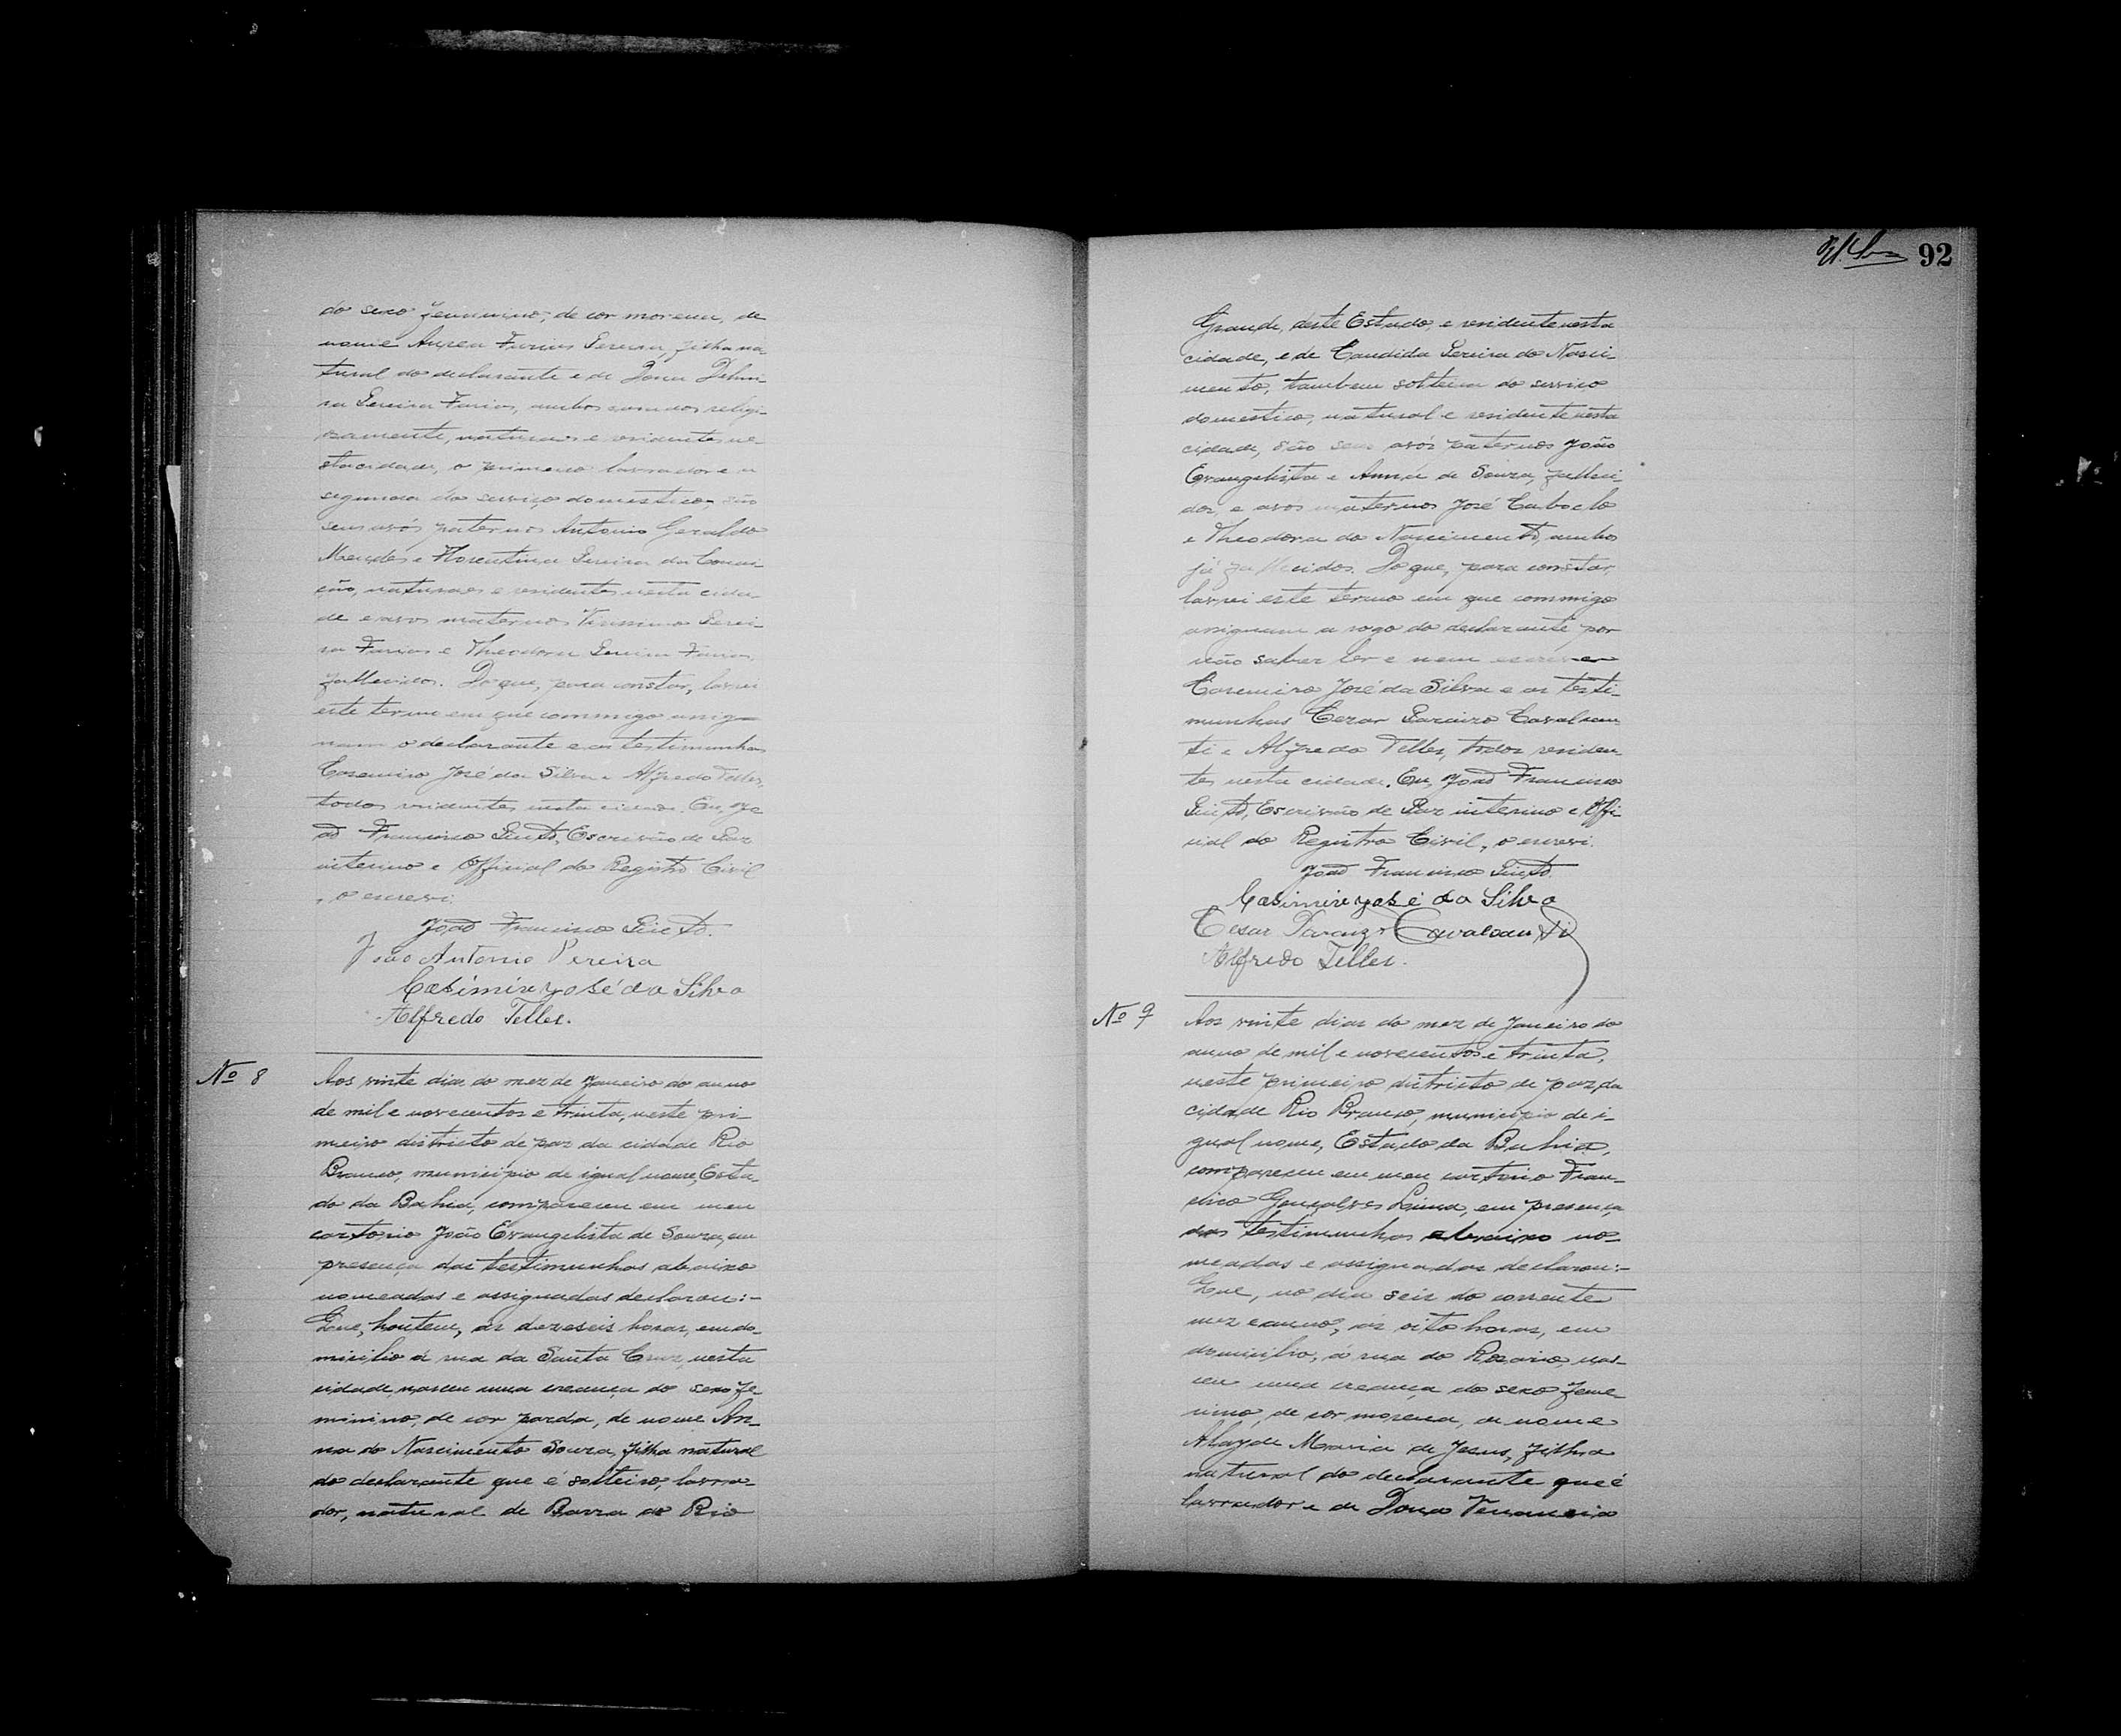 do sexo femenino, de cor morena, de
nome Aurea Farias Pereira, filha na-
tural do declarante e de Dona Delmi-
ra Pereira Farias, ambos casados religi-
osamente, naturaes e residentes ne-
sta cidade, o primeiro lavrador e a
segunda do serviço domestico, são
seus avós paternos Antonio Geraldo
Mendes e Florentina Pereira da Concei-
ção, naturaes e residentes nesta cida-
de e avos maternos Verissimo Perei-
ra Farias e Theodora Pereira Farias,
fallecidos. Do que, para constar, lavrei
este termo em que commigo assig-
nam o declarante e as testimunhas
Casemiro José da Silva e Alfredo Telles,
todos residentes nesta cidade. Eu, Jo
ão Francisco Pinto, Escrivão de Paz
interino e Official do Registro Civil
, o escrevi.
João Francisco Pinto.
João Antonio Pereira
Casimiro José da Silva
Alfredo Telles.
Nº 8
Aos vinte dias do mez de Janeiro do anno
de mil e novecentos e trinta, neste pri-
meiro districto de paz da cidade Rio
Branco, municipio de igual nome, Esta-
do da Bahia, compareceu em meu
cartorio João Evangelista de Souza, em
presença das testimunhas abaixo
nomeadas e assignadas declarou:-
Que, hontem, às dezeseis horas, em do-
micilio á rua da Santa Cruz, nesta
cidade, nasceu uma creança do sexo fe-
minino, de cor parda, de nome An-
na do Nascimento Souza, filha natural
do declarante que é solteiro, lavra-
dor, natural de Barra do Rio
92
Grande, deste Estado, e residente nesta
cidade, e de Candida Pereira do Nasci-
mento, tambem solteira do serviço
domestico, natural e residente nesta
cidade, são seus avós paternos João
Evangelista e Anna de Souza, falleci-
dos, e avós maternos José Caboclo
e Theodora do Nascimento, ambos
já fallecidos. Do que, para constar,
lavrei este termo em que commigo
assignam a rogo do declarante por
não saber ler e nem escrever
Casemiro José da Silva e as testi-
munhas Cezar Cavalcan
ti e Alfredo Telles, todos residen-
tes nesta cidade. Eu, João Francisco
Pinto, Escrivão de Paz interino e Offi-
cial do Registro Civil, o escrevi.
João Francisco Pinto.
Casimiro José da Silva
Cesar Cavalcanti
Alfredo Telles.
Nº 9
Aos vinte dias do mez de Janeiro do
anno de mil e novecentos e trinta,
neste primeiro districto de paz da
cidade Rio Branco, municipio de i-
gual nome, Estado da Bahia,
compareceu em meu cartorio Fran-
cisco Gonçalves Lima, em presença
das testimunhas abaixo no-
meadas e assignadas declarou:-
Que, no dia seis do corrente
mez e anno, às oito horas, em
domicilio, á rua do Rosario, nas-
ceu uma creança do sexo feme-
nino, de cor morena, de nome
Alayde Maria de Jesus, filha
natural do declarante que é
lavrador e de Dona Venancia